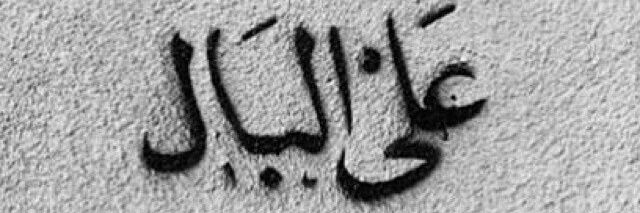 عَلى البَال